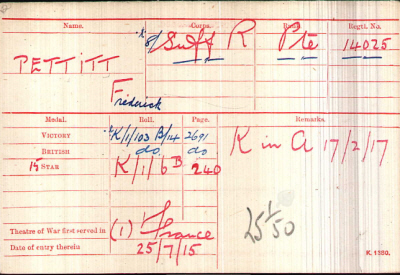 Name. Corps. Rank. Regtl. No.
PETTITT 8/Suff R Pte 14025
Frederick
Medal. Roll. Page. Remarks.
VICTORY K/1/103 B/14 2691
BRITISH do do
15 STAR K/1/6 B 240
K in A 17/2/17
Theatre of War first served in (1) France
Date of entry therein 25/7/15
K. 1380.